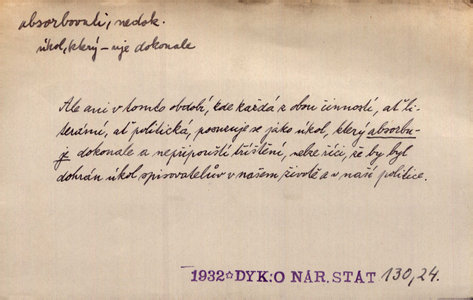 absorbovati, nedok.
úkol, který –uje dokonale
Ale ani v tomto období, kde každá z obou činností, ať li-
terární, ať politická, posuzuje se jako úkol, který absorbu-
je dokonale a nepřipouští tříštění, nelze říci, že by byl
dohrán úkol spisovatelův v našem životě a v naší politice.
1932☆DYK:O NÁR.STÁT 130,24.